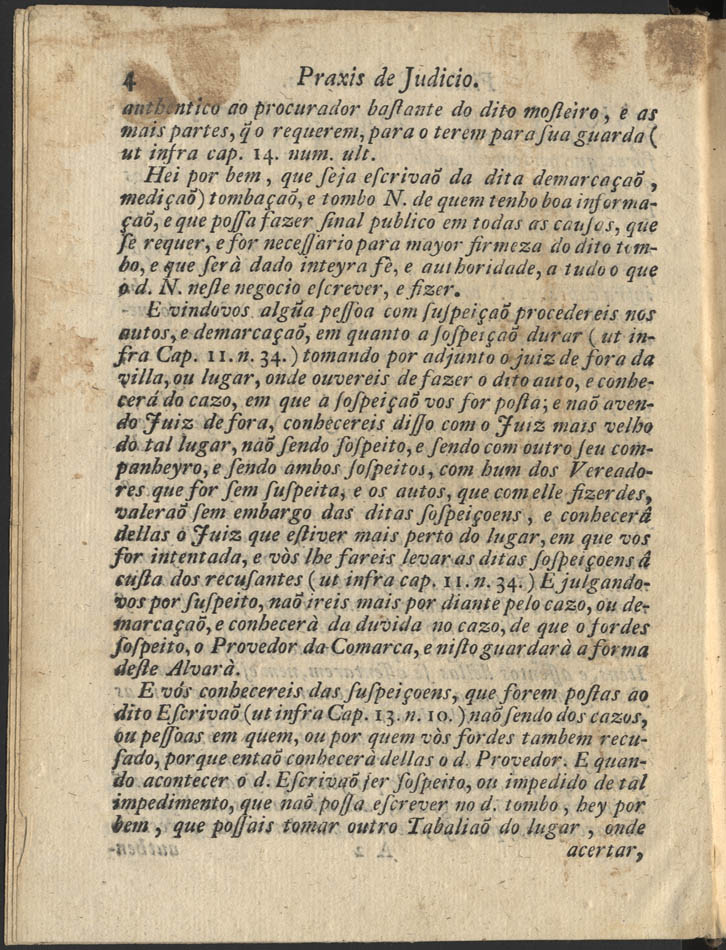 4 Praxis de Judicio.
authentico ao procurador baſtante do dito moſteiro, e as
mais partes, q̃ o requerem, para o terem para ſua guarda (
ut infra cap. 14. num. ult.
Hei por bem, que ſeja eſcrivaõ da dita demarcaçaõ,
mediçaõ) tombaçaõ, e tombo N. de quem tenho boa informa-
çaõ, e que poſſa fazer ſinal publico em todas as cauſas, que
ſe requer, e for neceſſario para mayor firmeza do dito tom-
bo, e que ſerà dado inteyra fè, e authoridade, a tudo o que
o d. N. neſte negocio eſcrever, e fizer.
E vindovos algũa peſſoa com ſuſpeiçaõ procedereis nos
autos, e demarcaçaõ, em quanto a ſoſpeiçaõ durar (ut in-
fra Cap. 11. n. 34.) tomando por adjunto o juiz de fora da
villa, ou lugar, onde ouvereis de fazer o dito auto, e conhe-
cerá do cazo, em que à ſoſpeiçaõ vos for poſta; e naõ aven-
do Juiz de fora, conhecereis diſſo com o Juiz mais velho
do tal lugar, naõ ſendo ſoſpeito, e ſendo com outro ſeu com-
panheyro, e ſendo ambos ſoſpeitos, com hum dos Vereado-
res que for ſem ſuſpeita, e os autos, que com elle fizerdes,
valeraõ ſem embargo das ditas ſoſpeiçoens, e conhecerâ
dellas o Juiz que eſtiver mais perto do lugar, em que vos
for intentada, e vòs lhe fareis levar as ditas ſoſpeiçoens â
cuſta dos recuſantes (ut infra cap. 11. n. 34.) E julgando-
vos por ſuſpeito, naõ ireis mais por diante pelo cazo, ou de-
marcaçaõ, e conhecerà da duvida no cazo, de que o fordes
ſoſpeito, o Provedor da Comarca, e niſto guardarà a forma
deſte Alvarà.
E vós conhecereis das ſuſpeiçoens, que forem poſtas ao
dito Eſcrivaõ (ut infra Cap. 13. n. 10.) naõ ſendo dos cazos,
ou peſſoas em quem, ou por quem vòs fordes tambem recu-
ſado, porque entaõ conhecerà dellas o d. Provedor. E quan-
do acontecer o d. Eſcrivaõ ſer ſoſpeito, ou impedido de tal
impedimento, que naõ poſſa eſcrever no d. tombo, hey por
bem, que poſſais tomar outro Tabaliaõ do lugar, onde
acertar,